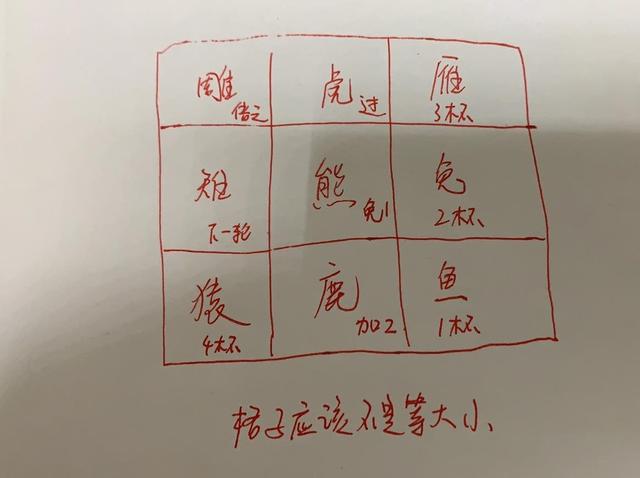 雕 虎 雁
倍之 过 3杯
雉 熊 兔
下一轮 免1 2杯
猿 鹿 鱼
4杯 加2 1杯
格子应该不是等大小